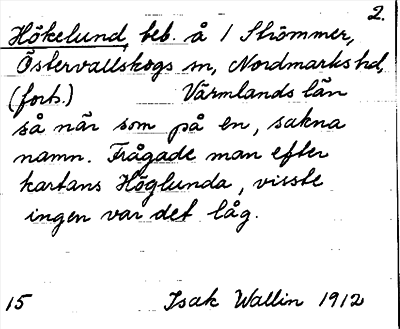 2.
Hökelund, beb. å 1 Strömmer,
Östervallskogs sn, Nordmarks hd,
(forts.) Värmlands län
så när som på en, sakna
namn. Frågade man efter
kartans Höglunda, visste
ingen var det låg.
15 Isak Wallin 1912